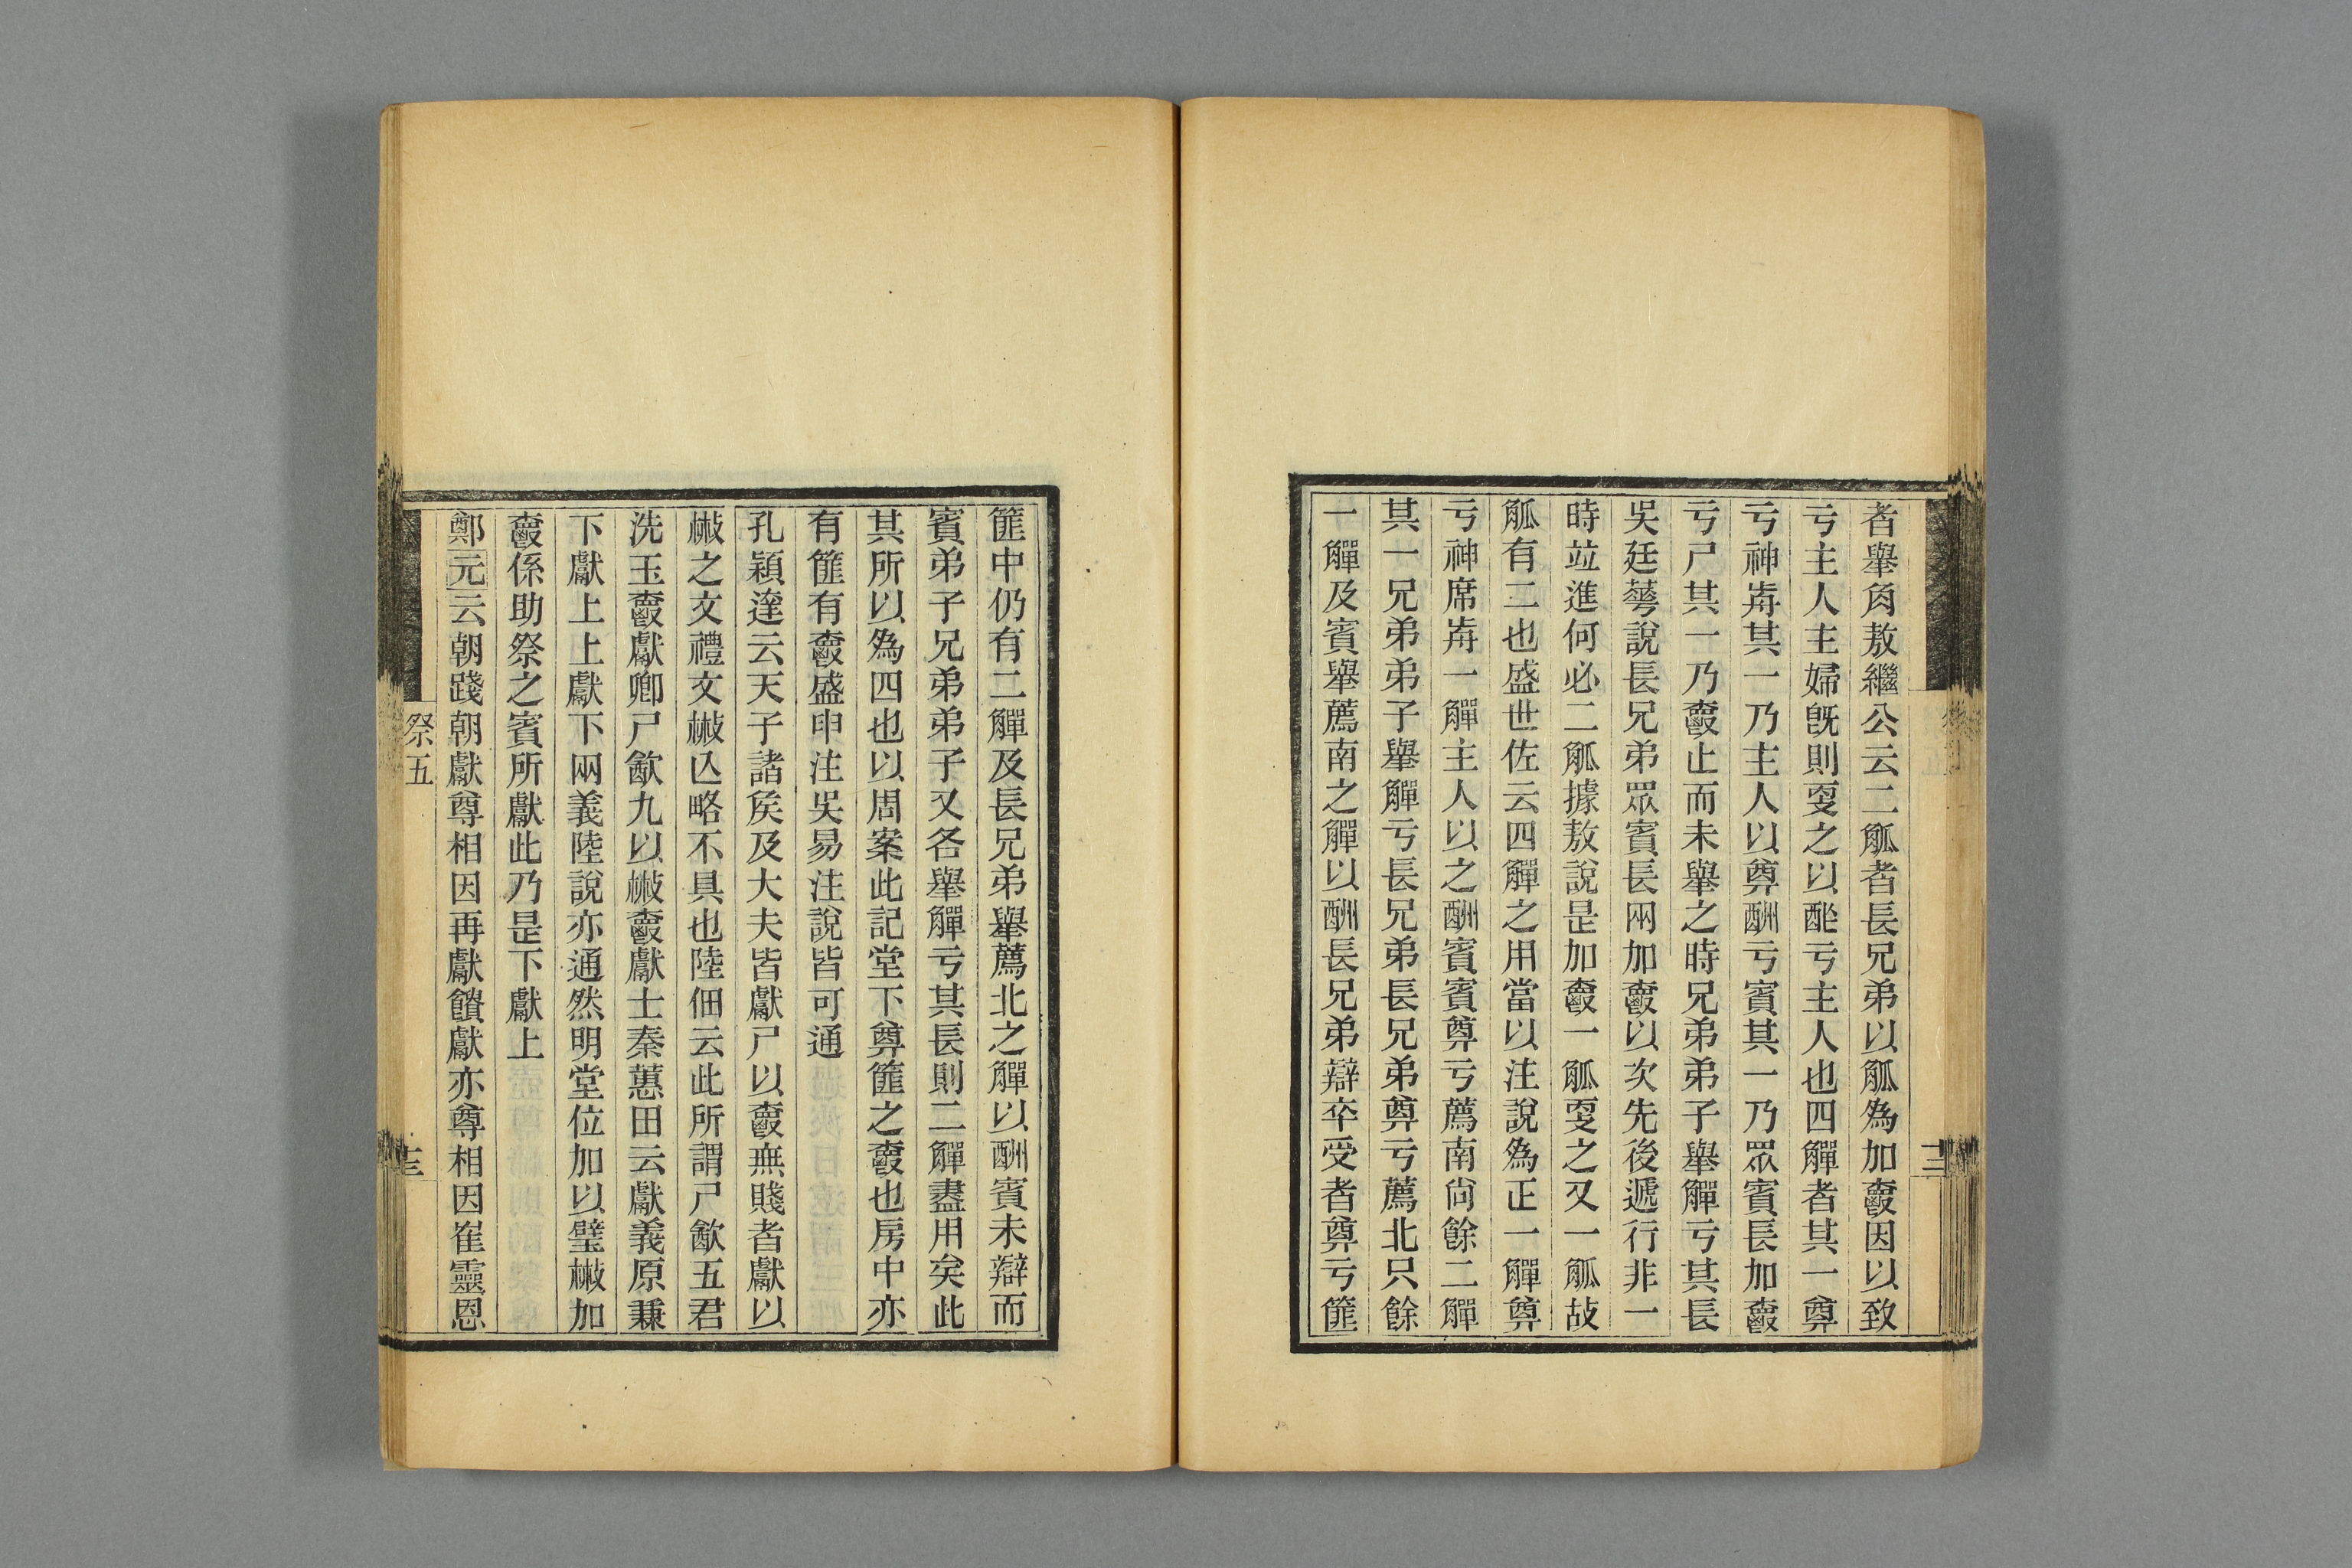 者舉肏敖繼公云二觚者長兄弟以觚為加爵因以致
亏主人主婦旣則叓之以酢亏主人也四觶者其一尊
亏神歬其一乃主人以尊酬亏賓其一乃眾賓長加爵
亏尸其一乃爵止而未舉之時兄弟弟子舉觶亏其長
吳廷華說長兄弟眾賓長兩加爵以次先後遞行非一
時竝進何必二觚據敖說是加爵一觚叓之又一觚故
觚有二也盛世佐云四觶之用當以注說為正一觶尊
亏神席歬一觶主人以之酬賓賓尊亏薦南尙餘二觶
其一兄弟弟子舉觶亏長兄弟長兄弟尊亏薦北只餘
一觶及賓舉薦南之觶以酬長兄弟辯卒受者尊亏篚
篚中仍有二觶及長兄弟舉薦北之觶以酬賓未辯而
賓弟子兄弟弟子又各舉觶亏其長則二觶盡用矣此
其所以為四也以周案此記堂下尊篚之爵也房中亦
有篚有爵盛申注吳易注說皆可通
孔穎達云天子諸矦及大夫皆獻尸以爵無賤者獻以
㪔之文禮文㪔亾略不具也陸佃云此所謂尸飮五君
洗玉爵獻卿尸飮九以㪔爵獻士秦蕙田云獻義原兼
下獻上上獻下兩義陸說亦通然明堂位加以璧㪔加
爵係助祭之賓所獻此乃是下獻上
鄭元云朝踐朝獻尊相因再獻饋獻亦尊相因崔靈恩
祭五